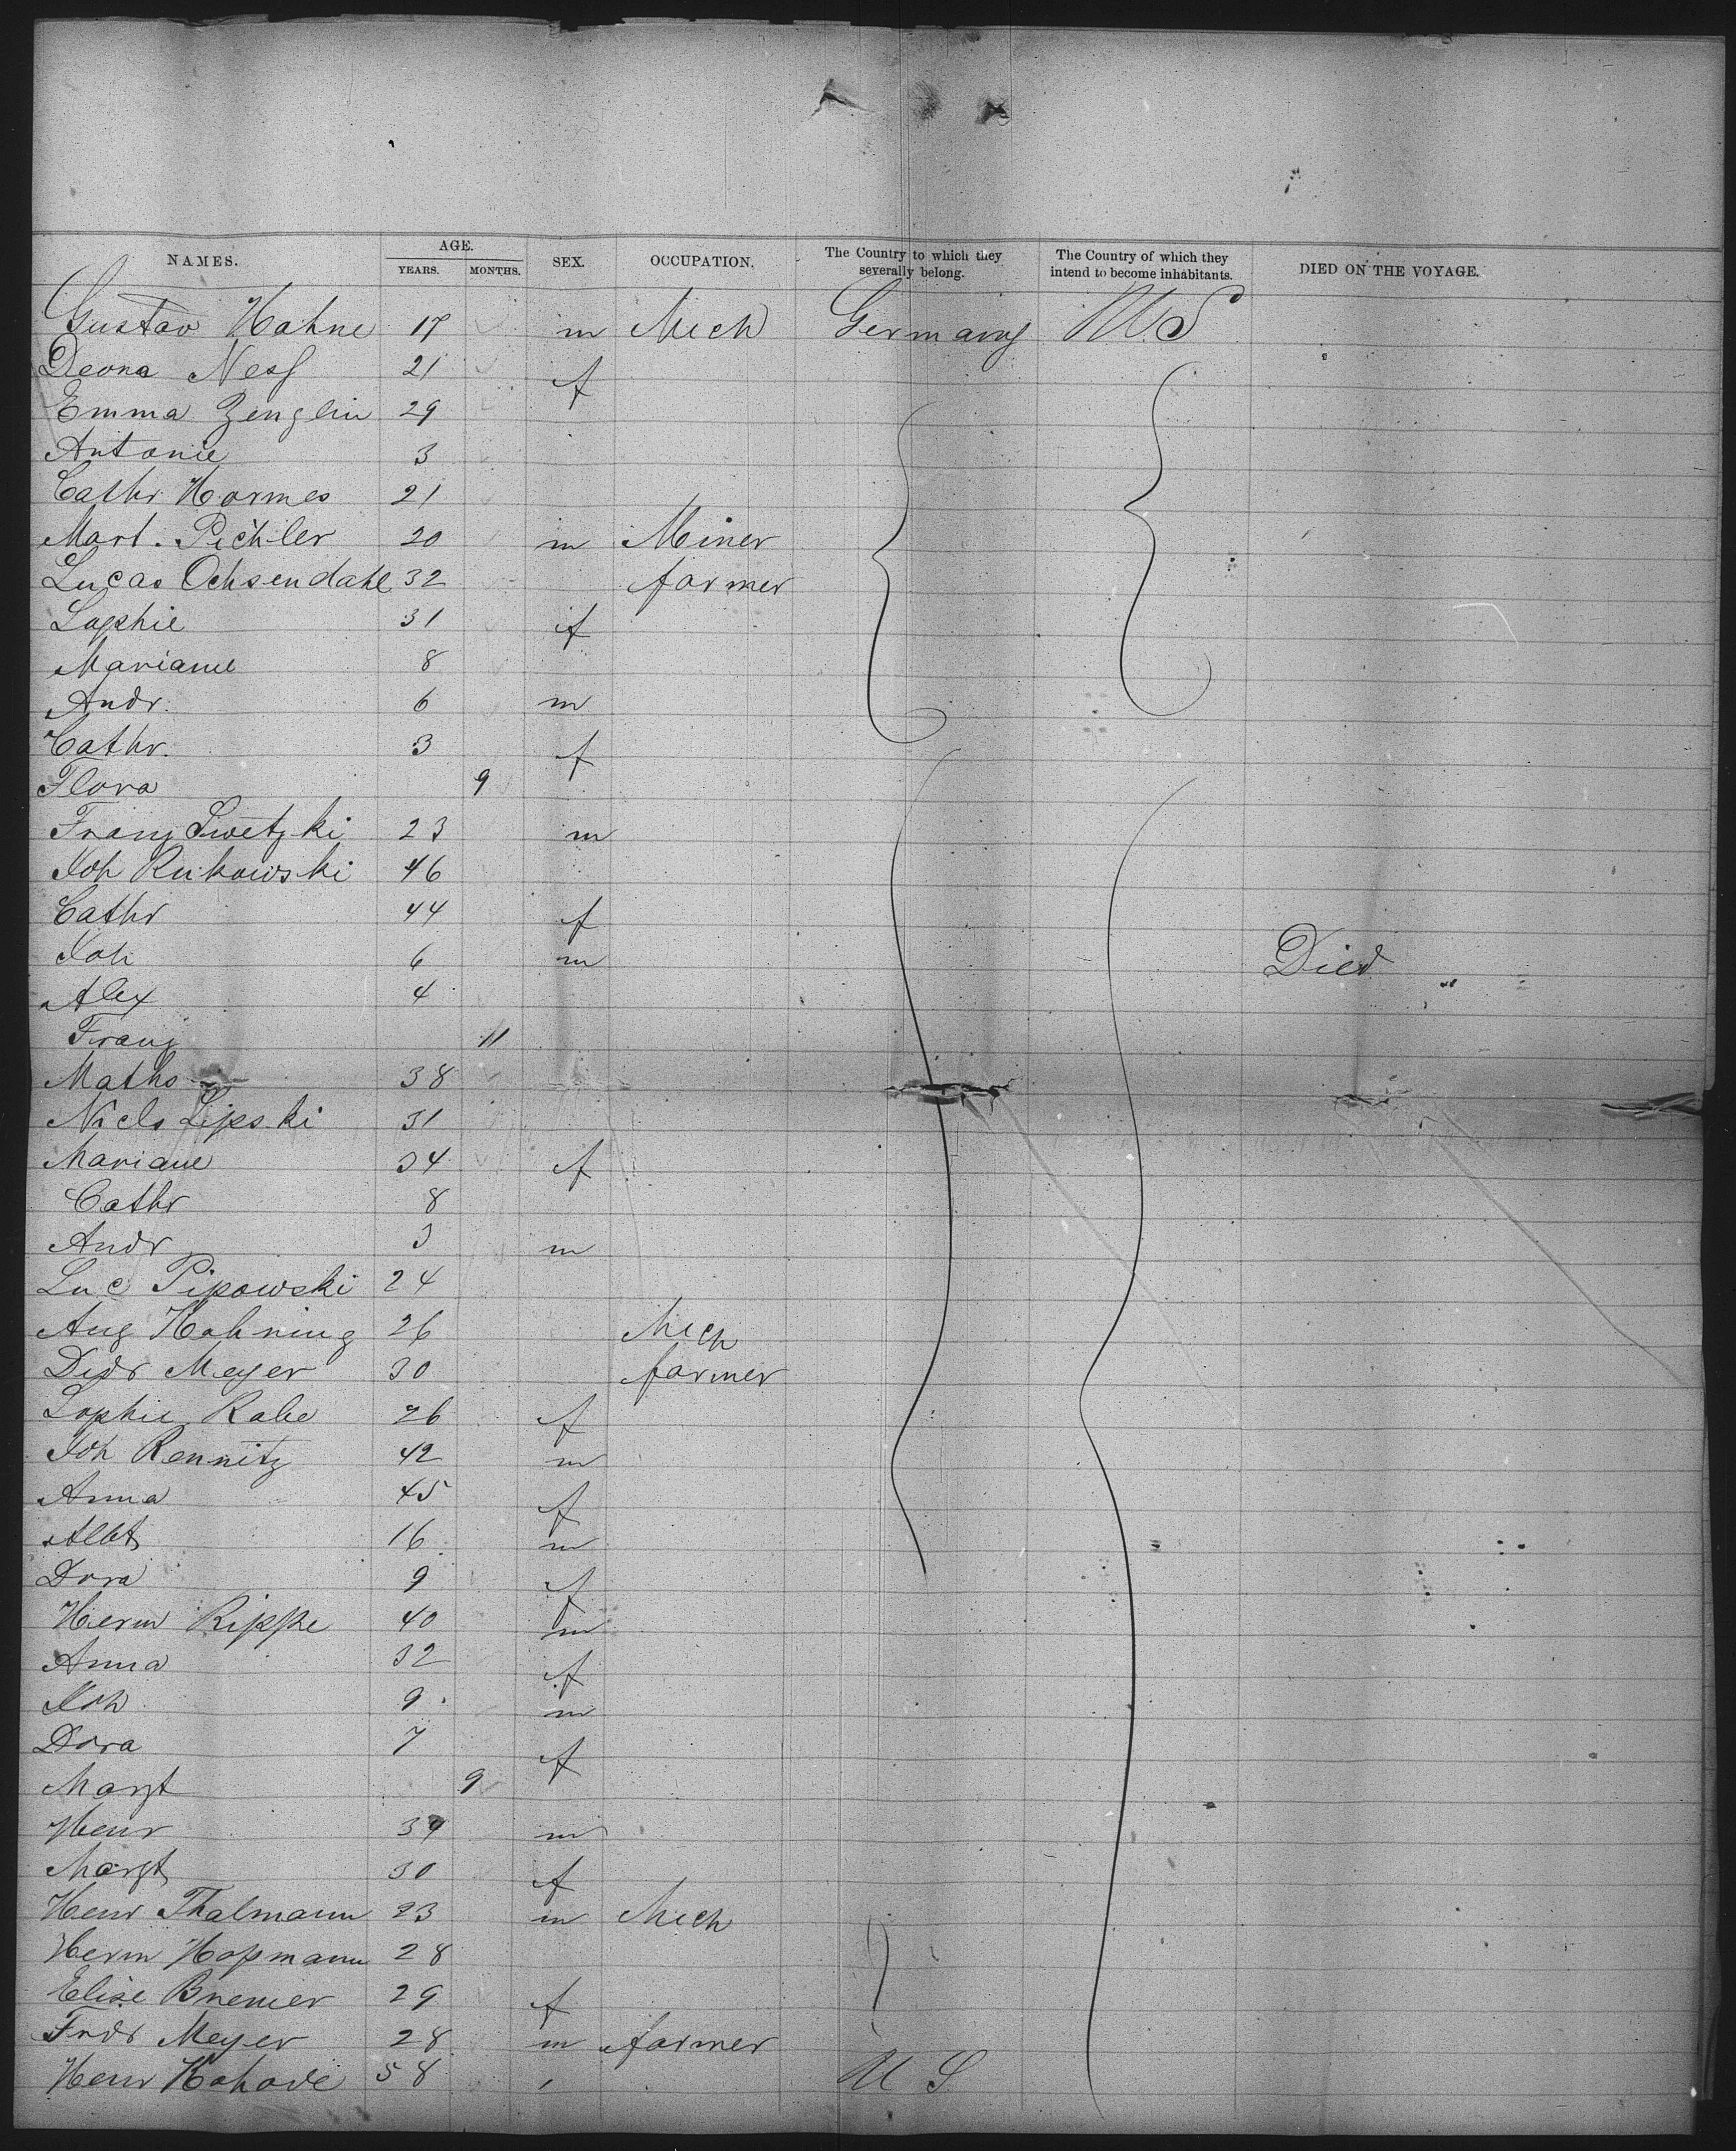 NAMES. AGE. YEARS. MONTHS. SEX. OCCUPATION. The Country to which they severally belong. The Country of which they intend to become inhabitants. DIED ON THE VOYAGE.
Gustav Hahne 17 m Mech Germany U.S
Deona 21 f
Emma Zenglin 29
Antonie 3
Cathr Harmes 21
Mart. Pichler 20 m Miner
Lucas Ochsendahl 32 farmer
Sophie 31 f
Mariane 8
Andr. 6 m
Cathr. 3 f
Flora 9
Franz Swetzki 23 m
Joh Rukowski 46
Cathr 44 f
Joh 6 m Died
Alex 4
Franz 11
Maths 38
Nicls Lipski 31
Mariane 34 f
Cathr 8
Andr 3 m
Luc Pipowski 24
Aug Hohning 26 Mech
Didr Meyer 30 farmer
Sophie Rabe 26 f
Joh Rennitz 42 m
Anna 45 f
Albt 16 m
Dora 9 f
Herm Rippe 40 m
Anna 32 f
Joh 9 m
Dora 7 f
Margt 9
Henr m
Margt 30 f
Henr Thalmann 23 m Mech
Herm Hopmann 28
Elise Bremer 29 f
Frdr Meyer 28 m farmer
Henr 58 U S